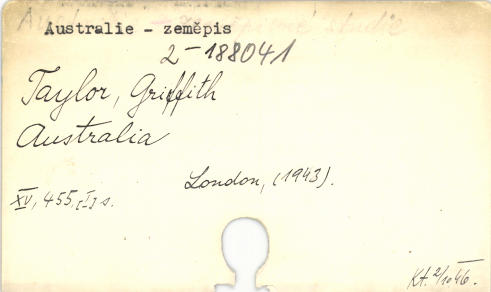 Australie - zeměpis
2-188041
Taylor, Griffith
Australia
London, (1943).
XV, 455, [I] s.
Kt. 2/10 46.